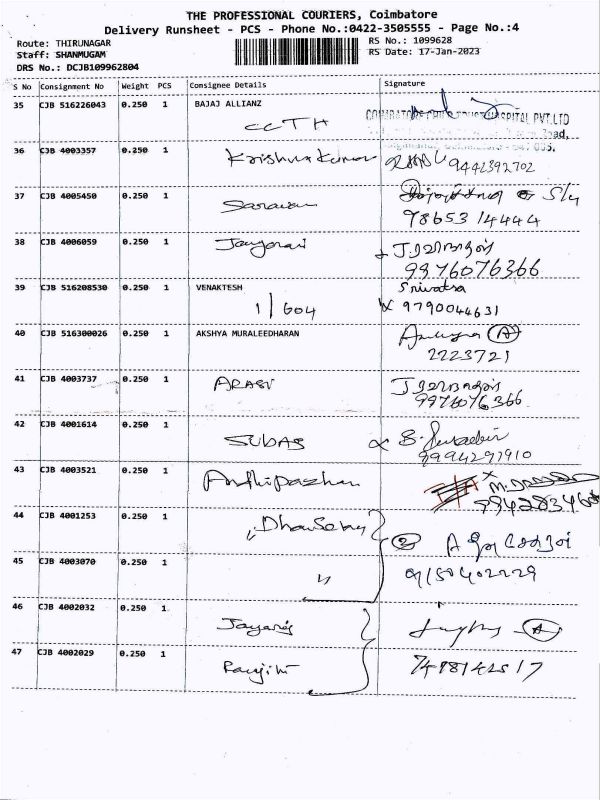 THE PROFESSIONAL COURIERS, Coimbatore
Delivery Runsheet - PCS - Phone No.:0422-3505555 - Page No.:4
Route: THIRUNAGAR
Staff: SHANMUGAM
DRS No.: DCJB109962804
RS No.: 1099628
RS Date: 17-Jan-2023
S No Consignment No Weight PCS Consignee Details Signature
35 CJB 516226043 0.250 1 BAJAJ ALLIANZ
CCTH
HOSPITAL PVT.LTD
Road,
36 CJB 4003357 0.250 1 Krishna Kumar
9442392702
37 CJB 4005450 0.250 1 Saravan
9865314444
38 CJB 4006059 0.250 1 Jayaraj
9976076366
39 CJB 516208530 0.250 1 VENAKTESH Srivatsa
1/604 9790044631
40 CJB 516300026 0.250 1 AKSHYA MURALEEDHARAN
2223721
41 CJB 4003737 0.250 1 ARASU
9976076366
42 CJB 4001614 0.250 1 SUBAS
9994297910
43 CJB 4003521 0.250 1 Anthipazhan
44 CJB 4001253 0.250 1
45 CJB 4003070 0.250 1 〃
9150402229
46 CJB 4002032 0.250 1
47 CJB 4002029 0.250 1 Ranjith